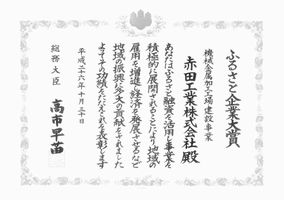 ふるさと企業大賞
機械金属加工場建設事業
赤田工業株式会社 殿
あなたはふるさと融資を活用し事業を
積極的に展開されることにより地域の
雇用を増進し経済を発展させるなど
地域の振興に多大の貢献をされました
よってその功績をたたえこれを表彰します
平成二十六年十月三十日
総務大臣
高市早苗